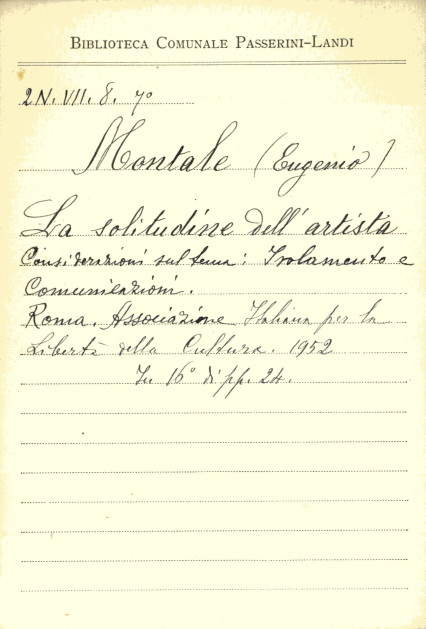 BIBLIOTECA COMUNALE PASSERINI-LANDI
2N. VII. 8. 7º
Montale (Eugenio)
La solitudine dell'artista
Considerazioni sul tema: Isolamento e
Comunicazioni.
Roma. Associazione Italiana per la
Libertà della Cultura. 1952
In 16° di pp. 24.